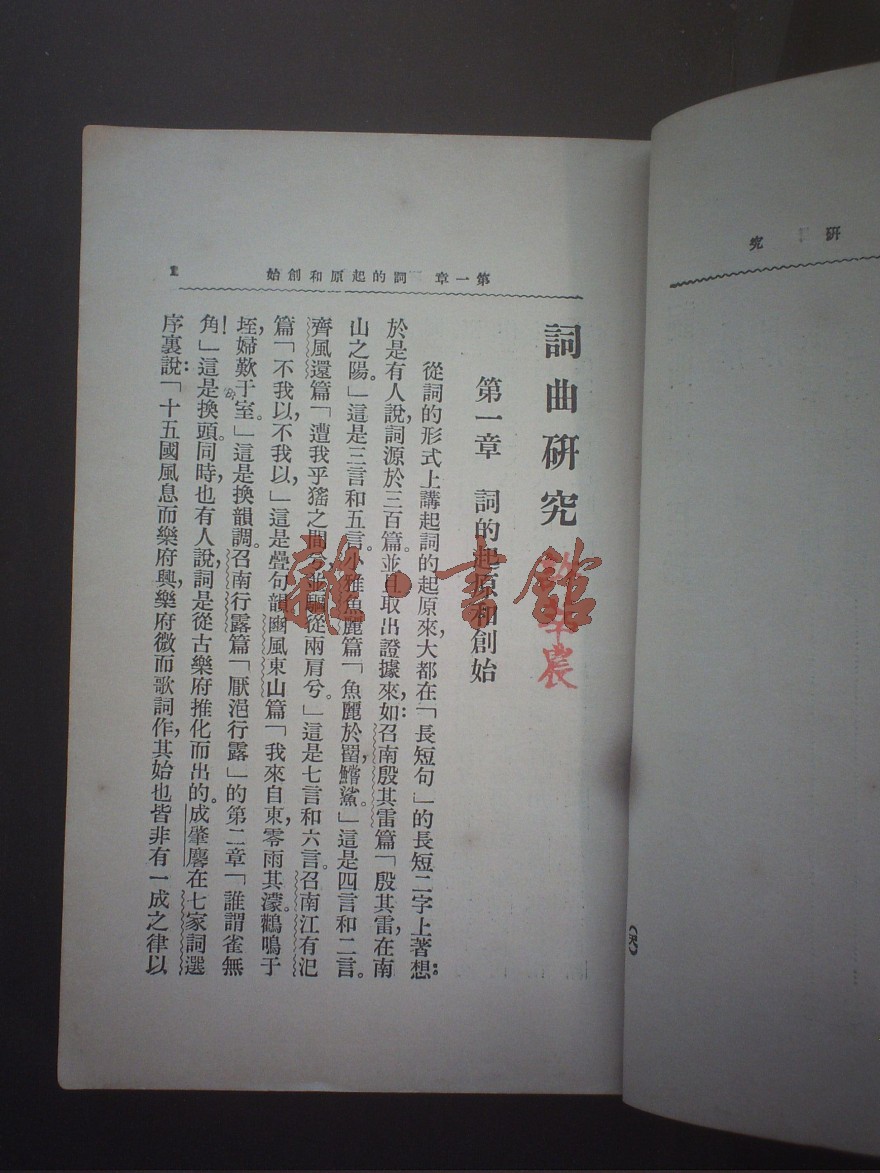 研究
第一章 詞的起原和創始
詞曲硏究
第一章 詞的起原和創始
從詞的形式上講起詞的起原來，大都在「長短句」的長短二字上著想：
於是有人說，詞源於三百篇。並且取出證據來，如：召南殷其雷篇「殷其雷，在南
山之陽。」這是三言和五言。小雅魚麗篇「魚麗於罶，鱨鯊。」這是四言和二言。
齊風還篇「遭我乎猺之間兮，並驅從兩肩兮。」這是七言和六言。召南江有汜
篇「不我以，不我以，」這是疊句韻。豳風東山篇「我來自東，零雨其濛。鸛鳴于
垤，婦歎于室。」這是換韻調。召南行露篇「厭浥行露」的第二章「誰謂雀無
角！」這是換頭。同時，也有人說，詞是從古樂府推化而出的。成肇麐在七家詞選
序裏說：「十五國風息而樂府興，樂府微而歌詞作，其始也皆非有一成之律以
雜·書館
農